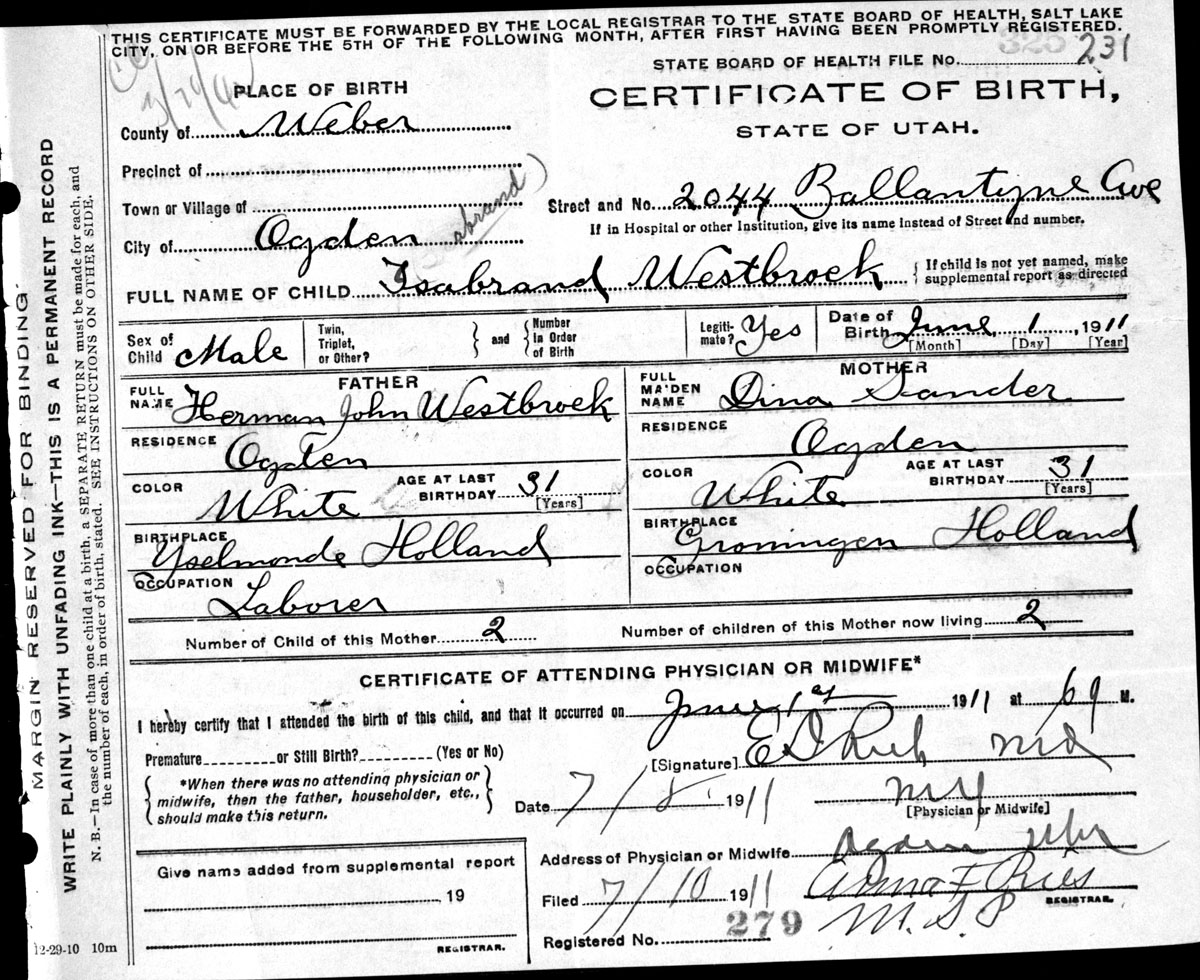 THIS CERTIFICATE MUST BE FORWARDED BY THE LOCAL REGISTRAR TO THE STATE BOARD OF HEALTH, SALT LAKE
CITY, ON OR BEFORE THE 5TH OF THE FOLLOWING MONTH, AFTER FIRST HAVING BEEN PROMPTLY REGISTERED.
325
STATE BOARD OF HEALTH FILE No. 231
PLACE OF BIRTH
CERTIFICATE OF BIRTH,
STATE OF UTAH.
County of Weber
Precinct of
Town or Village of
Street and No. 2044 Ballantyne Ave
If in Hospital or other Institution, give its name Instead of Street and number.
City of Ogden
sbrand
FULL NAME OF CHILD Isabrand Westbroek
If child is not yet named, make
supplemental report as directed
Sex of Child Male
Twin, Triplet, or Other?
and
Number In Order of Birth
Legiti-mate? Yes
Date of Birth June 1, 1911
[Month] [Day] [Year]
FATHER
FULL NAME Herman John Westbroek
RESIDENCE
Ogden
COLOR White
AGE AT LAST BIRTHDAY 31
[Years]
BIRTHPLACE
Yselmonde Holland
OCCUPATION
Laborer
MOTHER
FULL MAIDEN NAME Dina Sander
RESIDENCE
Ogden
COLOR White
AGE AT LAST BIRTHDAY 31
[Years]
BIRTHPLACE
Groningen Holland
OCCUPATION
Number of Child of this Mother 2
Number of children of this Mother now living 2
CERTIFICATE OF ATTENDING PHYSICIAN OR MIDWIFE*
I hereby certify that I attended the birth of this child, and that it occurred on June 1st 1911 at 6 M.
Premature or Still Birth? (Yes or No)
[Signature] E I Rich MD
*When there was no attending physician or
midwife, then the father, householder, etc.,
should make this return.
Date 7/8 1911
[Physician or Midwife]
Address of Physician or Midwife Ogden
Give name added from supplemental report
19
REGISTRAR.
Filed 7/10 1911
REGISTRAR.
Registered No. 279
12-29-10 10m
MARGIN RESERVED FOR BINDING
WRITE PLAINLY WITH UNFADING INK—THIS IS A PERMANENT RECORD
N. B.—In case of more than one child at a birth, a SEPARATE RETURN must be made for each, and
the number of each, in order of birth, stated. SEE INSTRUCTIONS ON OTHER SIDE.